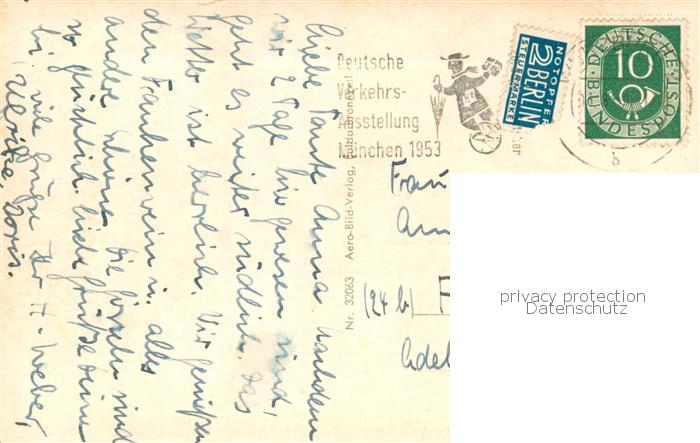 Liebe Tante Anna! Nachdem
wir 2 Tage hier gewesen sind,
geht es weiter südlich. Das
Wetter ist herrlich. Wir genießen
den Frankenwein u. alles
andere Schöne. Die sind
so glücklich. Liebe Grüße Deine
viele Grüße Ihr H. Weber,
Ulrike, Doris.
Nr. 32063 Aero-Bild-Verlag,
Deutsche
Verkehrs-
Ausstellung
München 1953
NOTOPFER
2 BERLIN
STEUERMARKE
DEUTSCHE
BUNDESPOST
10
b
Frau
(24 b)
privacy protection
Datenschutz